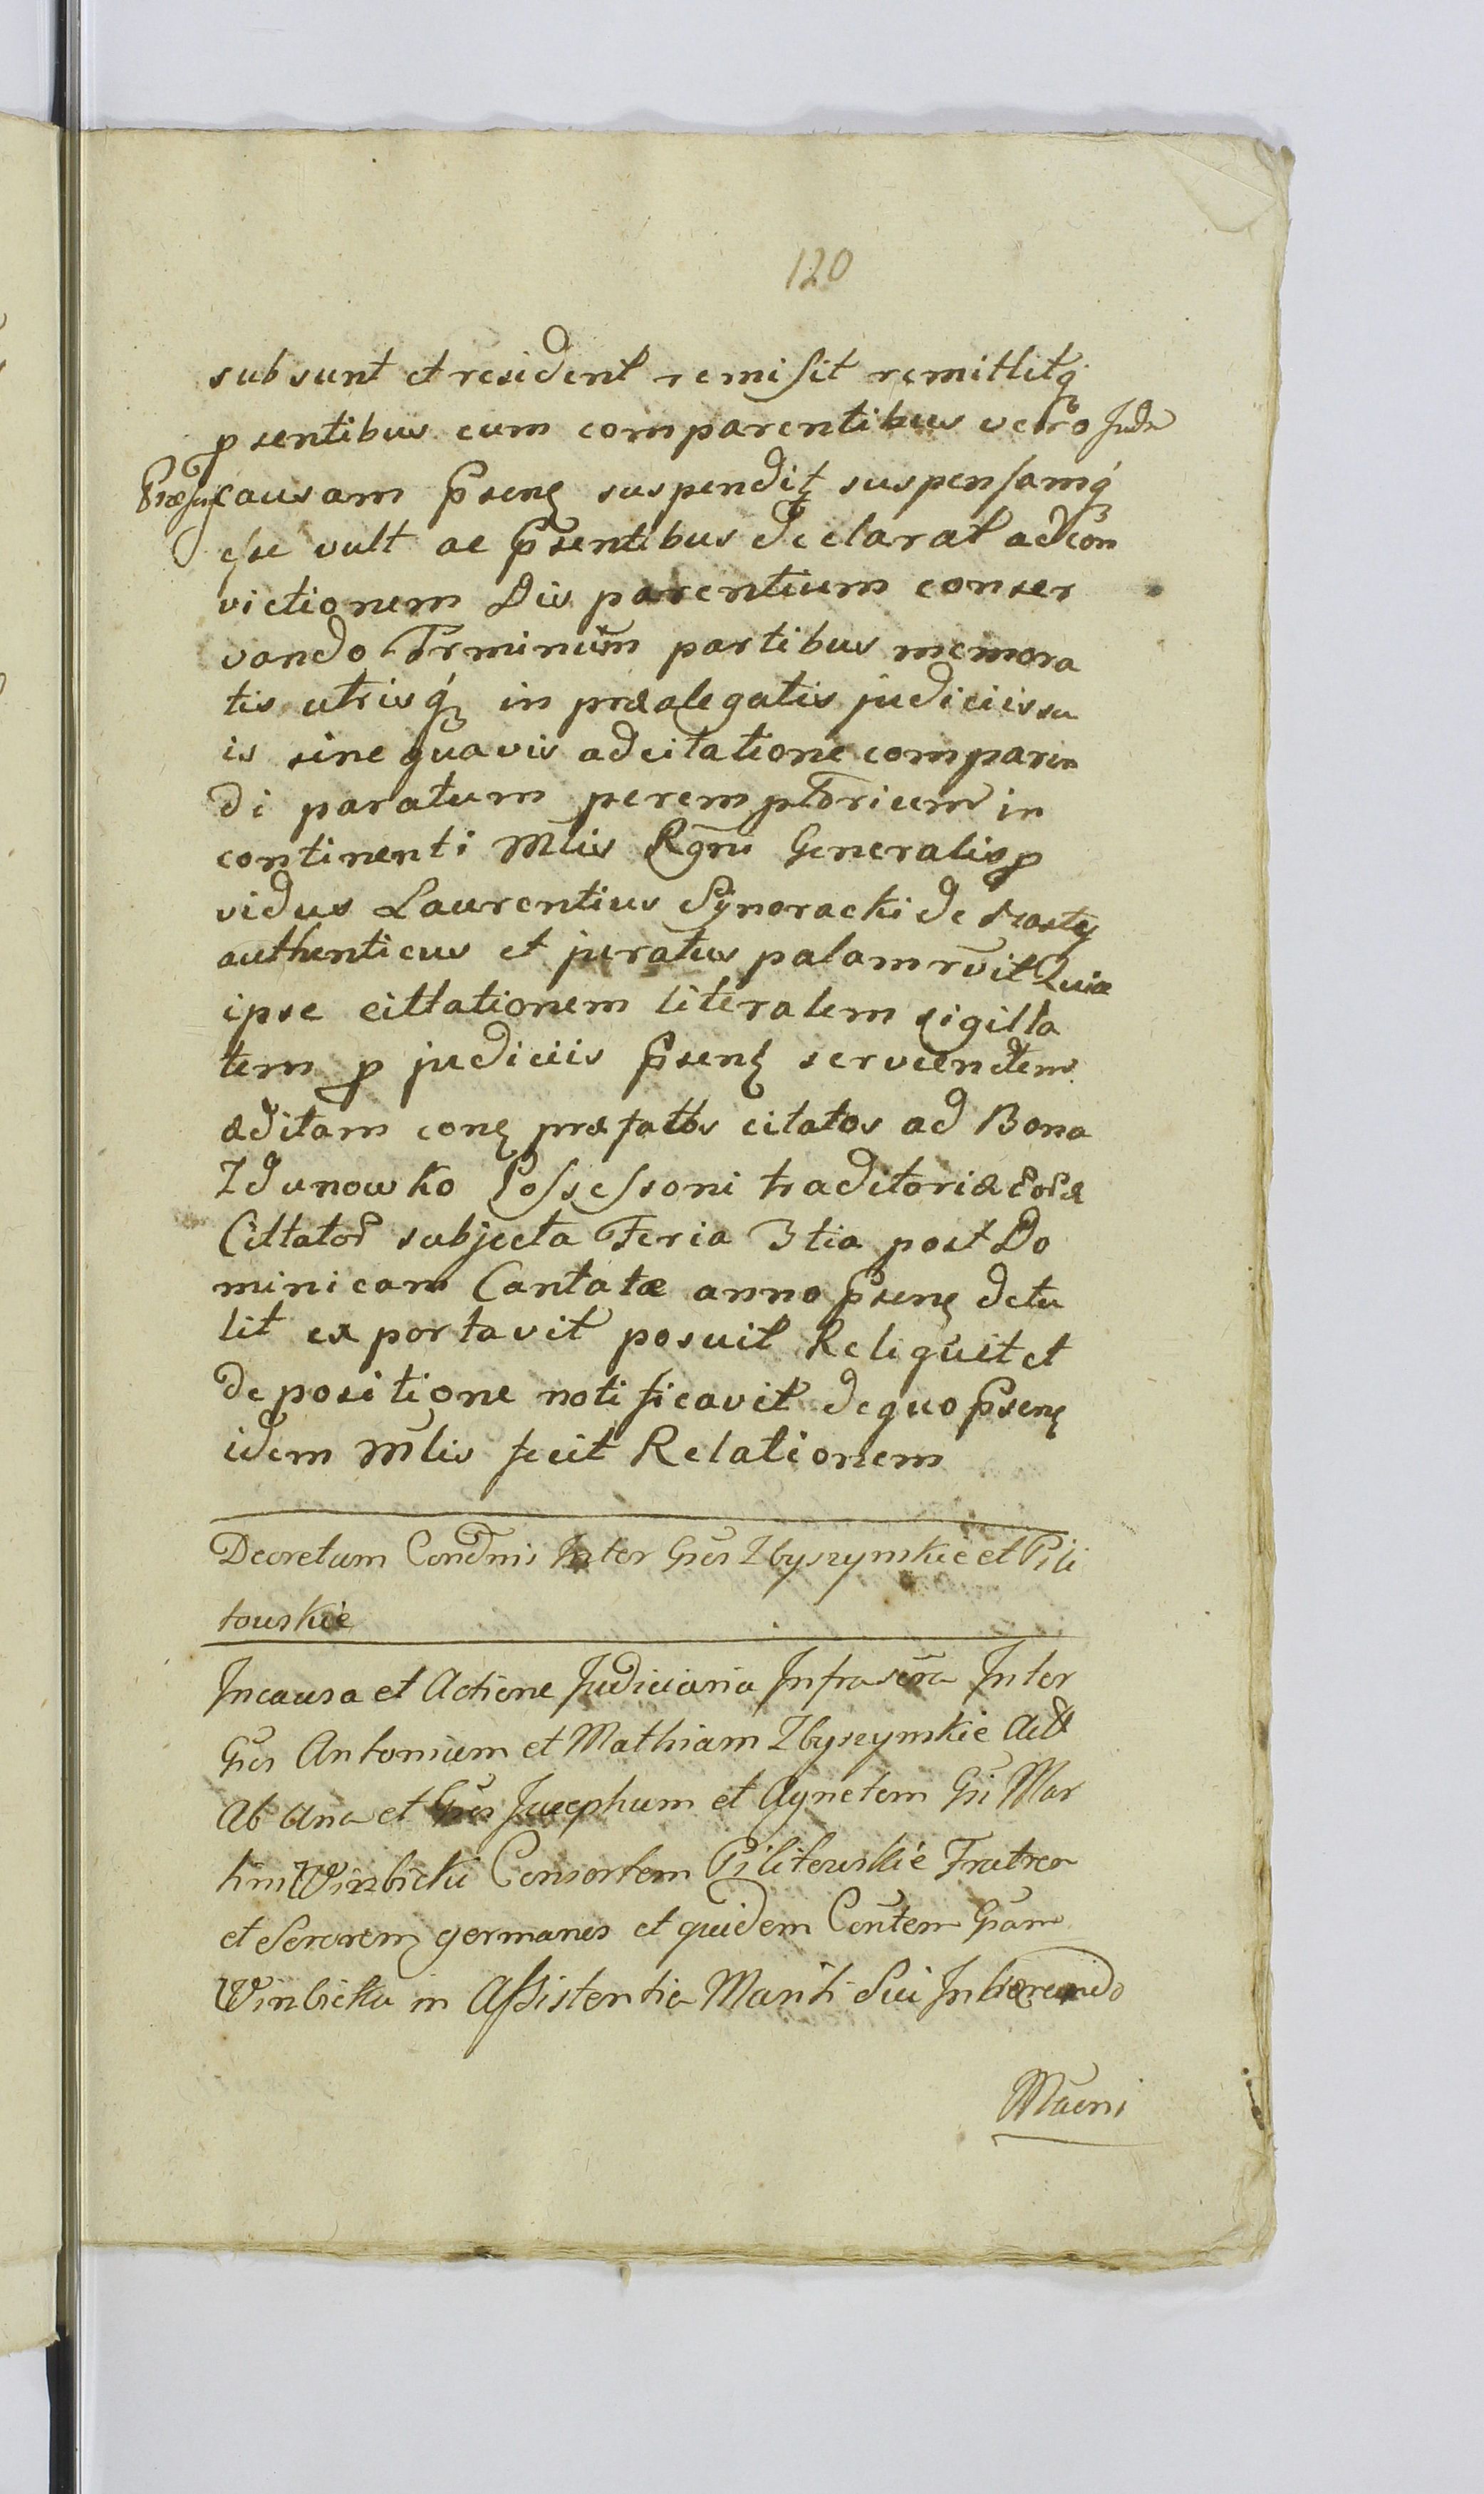 120
subsunt et resident remisit remittitq́
psentibus cum comparentibus vero Judm
Præsens causam p̄senę suspendit suspensamq́
esse vult ac p̄sentibus declarat ad con
victionem Dis parentium conser
vando Trminum̄ partibus memora
tis utrisq́ in præalegatis judiciis su
is sine quavis adcitatione comparen
di paratum peremptorium in
continenti Mlis Rgni Generalis p
vidus Laurentius Synoracki de
authenticus et juratus palam rv̄it Quia
ipse cittationem literalem sigilla
tem p judiciis p̄senę serviendem
æditam conę præfatos citatos ad Bona
Zdunowko Possessoni traditoriæ
Cittator subjecta Feria 3tia post Do
minicam Cantatæ anno p̄senę detu
lit exportavit posuit Reliquit et
depositione notificavit de quo p̄senę
idem Mlis fecit Relationem
Decretum Condnis Inter Gn̄os Zbyszynskie et Pili
towskie
In causa et Actione Judiciaria Infrascr̄a Inter
Gn̄os Antonium et Mathiam Zbyszynskie Act
Ab Una et Gn̄os Josephum et Agnetem Gn̄i Mar
tini Winbicki Consortem Pilitowskie Fratrem
et Sororem germanos et quidem Con̄tem Gn̄am
Winbicka in Assistentia Mariti Sui Inhærendo
Mācni